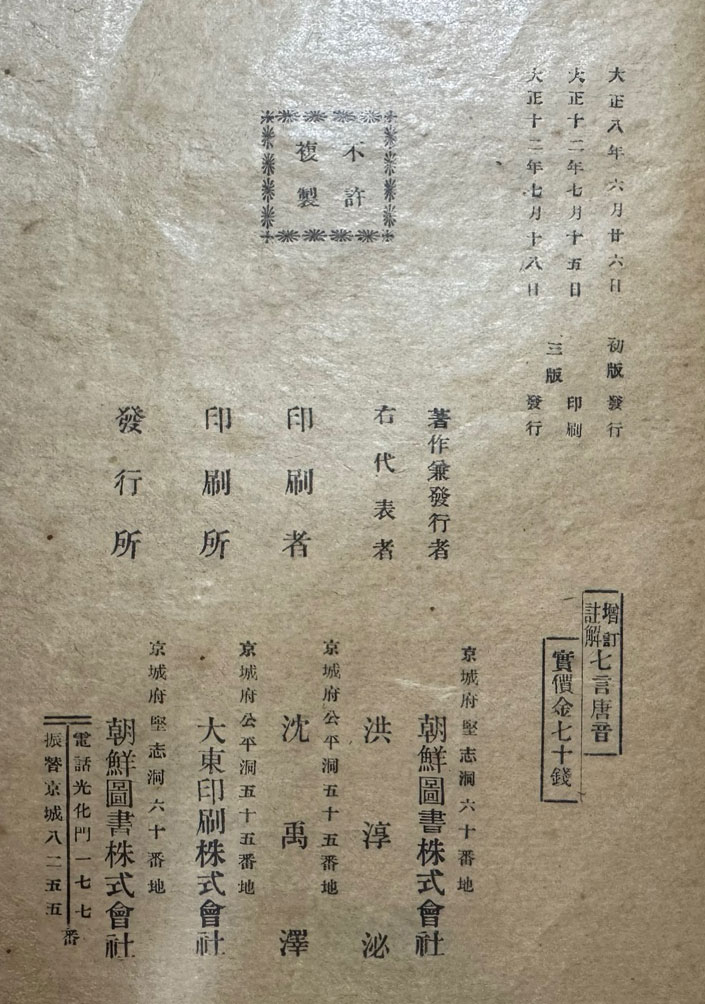 大正八年六月廿六日 初版發行
大正十二年七月十五日 印刷
三版
大正十二年七月十八日 發行
不許
複製
增訂
註解
七言唐音
實價金七十錢
京城府堅志洞六十番地
著作兼發行者 朝鮮圖書株式會社
右代表者 洪淳泌
京城府公平洞五十五番地
印刷者 沈禹澤
京城府公平洞五十五番地
印刷所 大東印刷株式會社
京城府堅志洞六十番地
發行所 朝鮮圖書株式會社
電話光化門一七七番
振替京城八二五五番